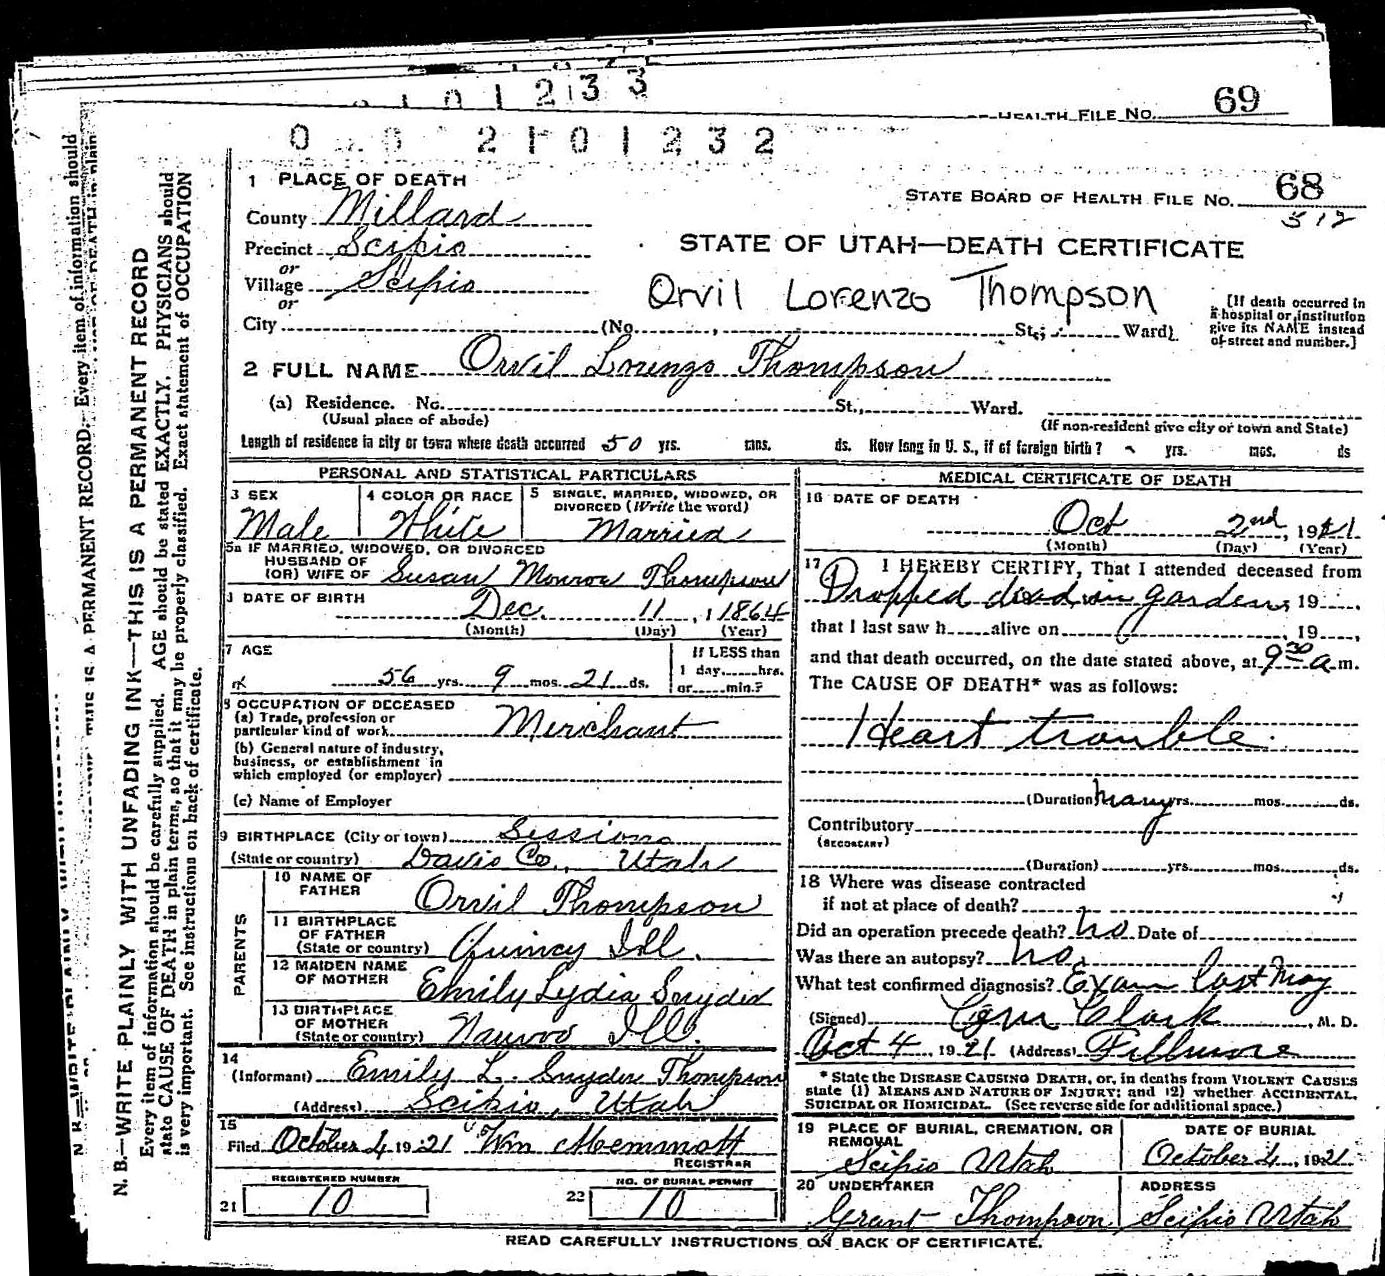 01233
HEALTH FILE NO. 69
0 0 2101232
1 PLACE OF DEATH
STATE BOARD OF HEALTH FILE NO. 68
512
County Millard
Precinct Scipio
or
Village Scipio
or
STATE OF UTAH—DEATH CERTIFICATE
Orvil Lorenzo Thompson
City (No. , St.; Ward)
[If death occurred in
a hospital or institution
give its NAME instead
of street and number.]
2 FULL NAME Orvil Lorenzo Thompson
(a) Residence. No. St., Ward.
(Usual place of abode) (If non-resident give city or town and State)
Length of residence in city or town where death occurred 50 yrs. mos. ds. How long in U. S., if of foreign birth? - yrs. mos. ds
PERSONAL AND STATISTICAL PARTICULARS
3 SEX Male
4 COLOR OR RACE White
5 SINGLE, MARRIED, WIDOWED, OR
DIVORCED (Write the word)
Married
5a IF MARRIED, WIDOWED, OR DIVORCED
HUSBAND OF
(OR) WIFE OF Susan Monroe Thompson
DATE OF BIRTH Dec. 11, 1864
(Month) (Day) (Year)
7 AGE
56 yrs. 9 mos. 21 ds.
If LESS than
1 day, hrs.
or min.?
8 OCCUPATION OF DECEASED
(a) Trade, profession or
particular kind of work Merchant
(b) General nature of industry,
business, or establishment in
which employed (or employer)
(c) Name of Employer
9 BIRTHPLACE (City or town) Sessions
(State or country) Davis Co., Utah
PARENTS
10 NAME OF
FATHER Orvil Thompson
11 BIRTHPLACE
OF FATHER
(State or country) Quincy Ill.
12 MAIDEN NAME
OF MOTHER Emily Lydia Snyder
13 BIRTHPLACE
OF MOTHER
(State or country) Nauvoo Ill.
14
(Informant) Emily L. Snyder Thompson
(Address) Scipio, Utah
15
Filed October 4 1921 Wm Memmott
REGISTRAR
REGISTERED NUMBER
21 10
NO. OF BURIAL PERMIT
22 10
MEDICAL CERTIFICATE OF DEATH
16 DATE OF DEATH
Oct 2nd, 1921
(Month) (Day) (Year)
17 I HEREBY CERTIFY, That I attended deceased from
Dropped dead in garden, 19
that I last saw h alive on , 19
and that death occurred, on the date stated above, at 9 30 a m.
The CAUSE OF DEATH* was as follows:
Heart trouble.
(Duration) many yrs. mos. ds.
Contributory
(SECONDARY)
(Duration) yrs. mos. ds.
18 Where was disease contracted
if not at place of death?
Did an operation precede death? no Date of
Was there an autopsy? no.
What test confirmed diagnosis? Exam last May
(Signed) Clark, M. D.
Oct 4, 1921 (Address) Fillmore
* State the DISEASE CAUSING DEATH, or, in deaths from VIOLENT CAUSES
state (1) MEANS AND NATURE OF INJURY; and (2) whether ACCIDENTAL,
SUICIDAL OR HOMICIDAL. (See reverse side for additional space.)
19 PLACE OF BURIAL, CREMATION, OR
REMOVAL
Scipio Utah
DATE OF BURIAL
October 4, 1921
20 UNDERTAKER
Grant Thompson
ADDRESS
Scipio Utah
READ CAREFULLY INSTRUCTIONS ON BACK OF CERTIFICATE.
N. B.—WRITE PLAINLY WITH UNFADING INK—THIS IS A PERMANENT RECORD
Every item of information should be carefully supplied. AGE should be stated EXACTLY. PHYSICIANS should
state CAUSE OF DEATH in plain terms, so that it may be properly classified. Exact statement of OCCUPATION
is very important. See instructions on back of certificate.
A PERMANENT RECORD. Every item of information should